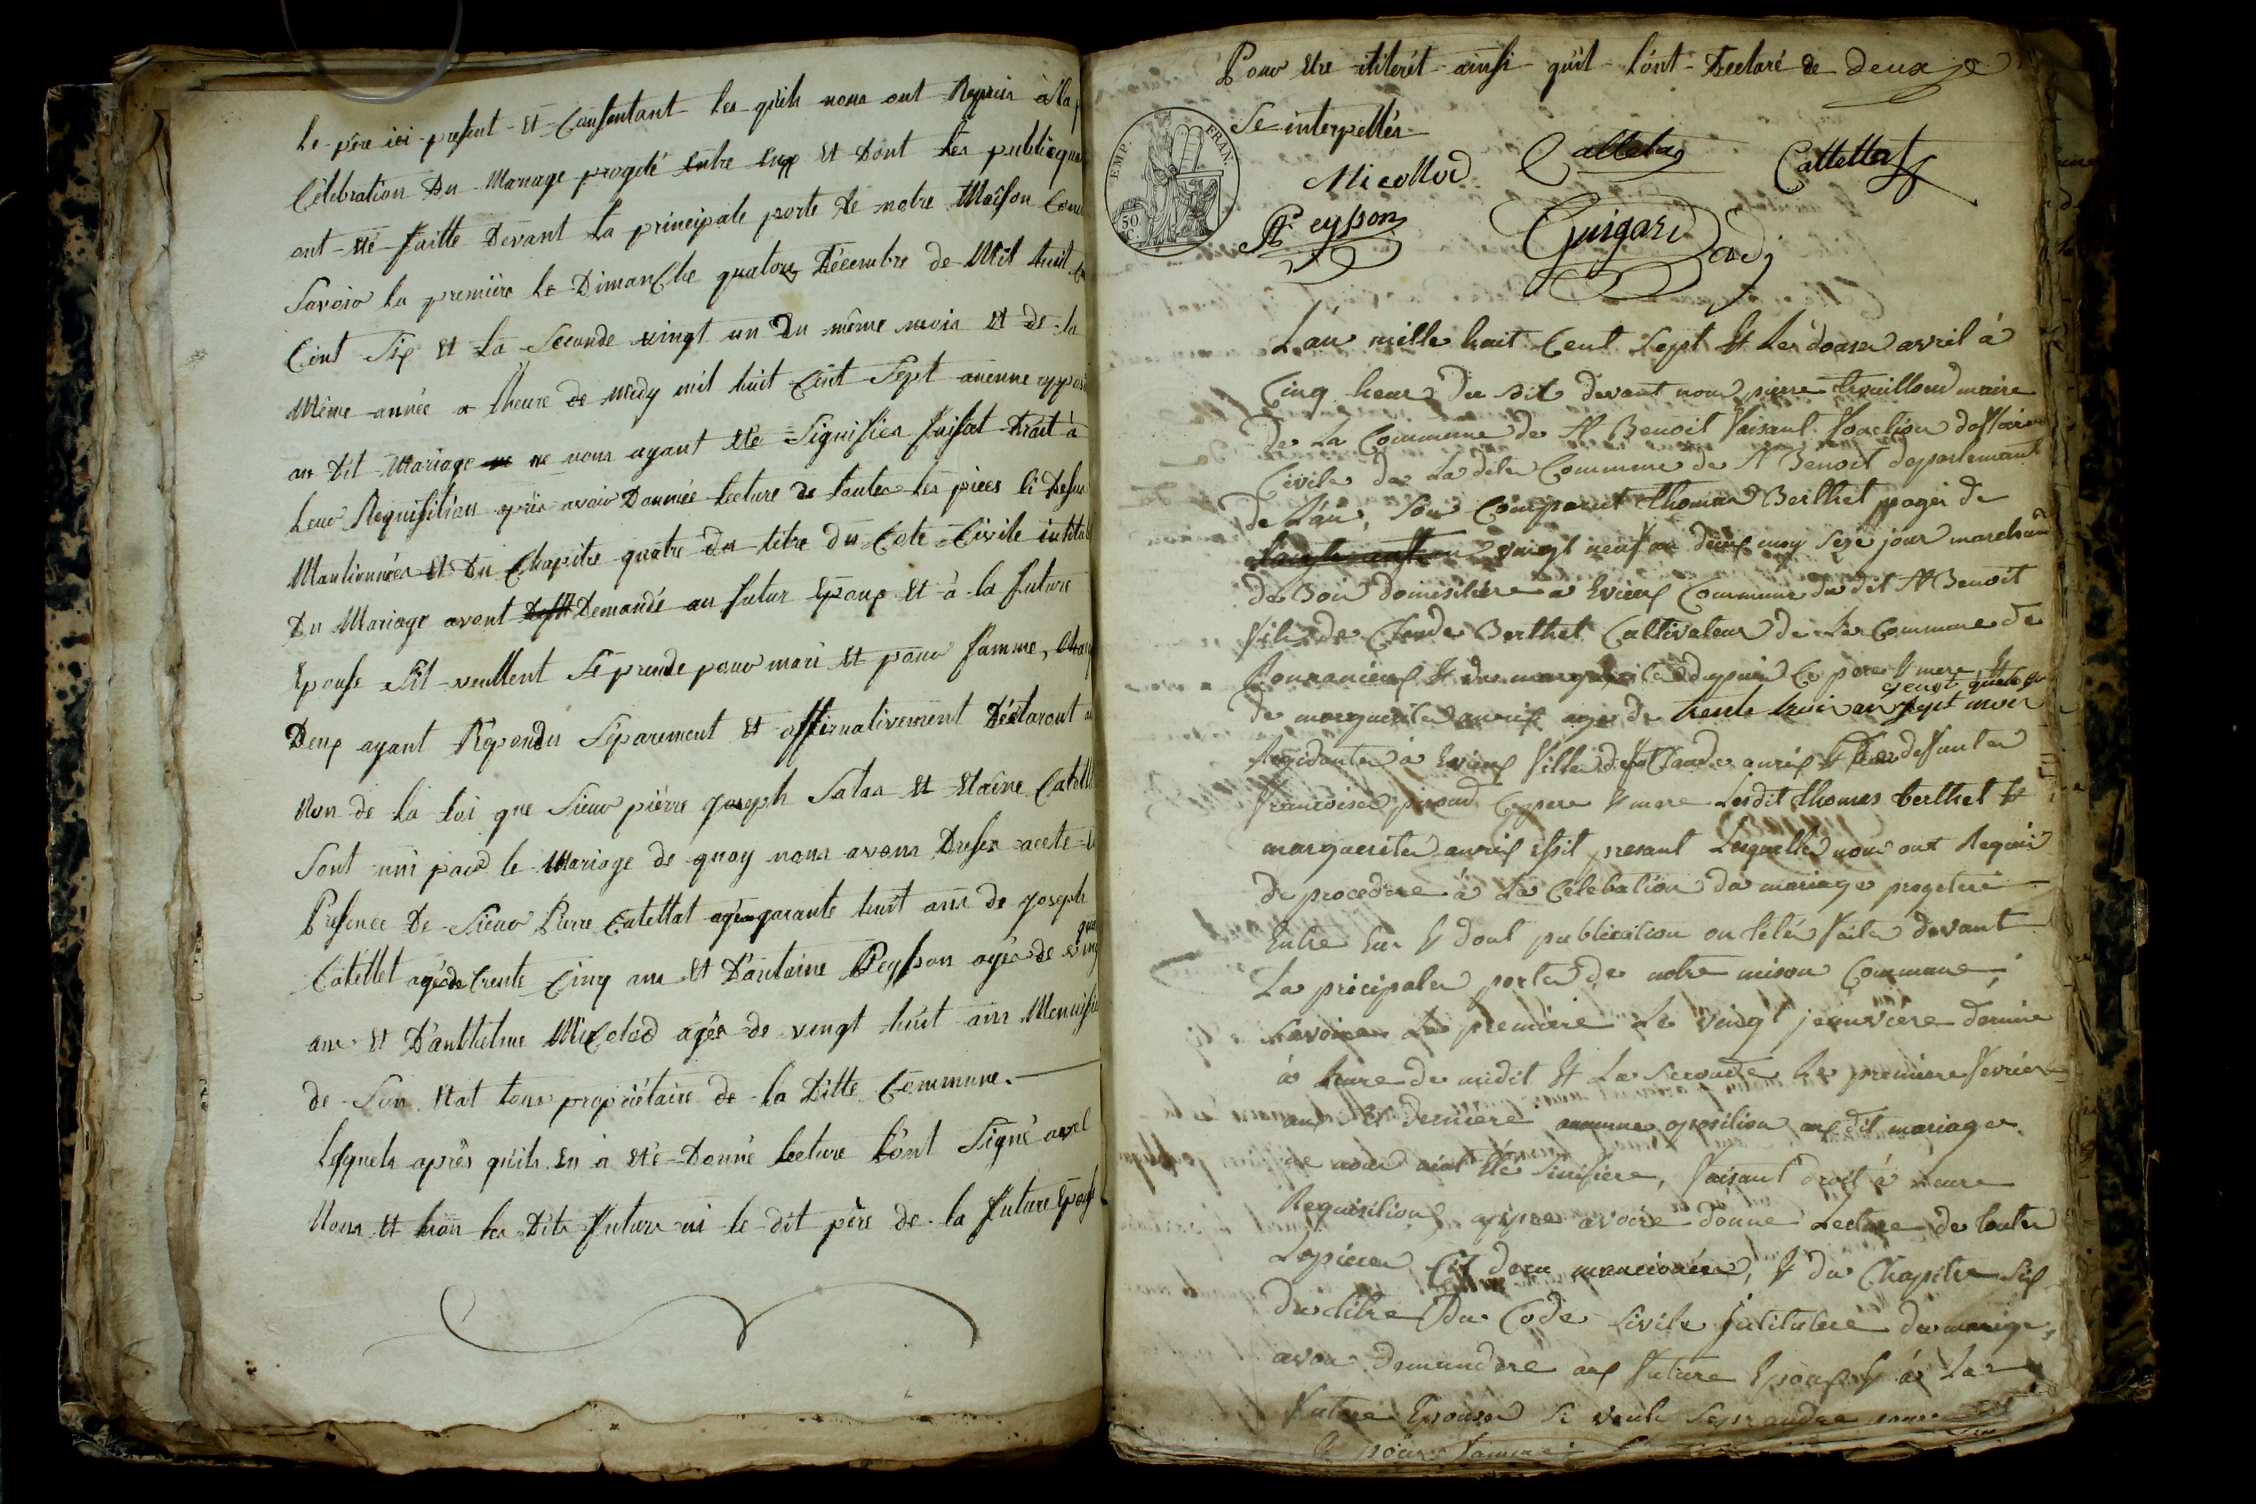 Le père ici present et Consentant les quils nous ont Requis à la
Célébration Du Mariage progété entre Eux et Dont les publicqua
ont été faitte Devant la principale porte de notre Maison Com
Savoir la première le Dimanche quatorze Décembre de Mil huit
Cent Six et la Seconde vingt un Du même mois et de la
Même année a l'heure de midy mil huit Cent Sept aucune oppo
au dit Mariage ne nous ayant été Signifiés faisat Droit à
Leur Requisition après avoir Donnée lecture de toutes les pieces Ci Desu
Mantionnées et Du Chapitre quatre du titre du Code Civile intitul
Du Mariage avont Demandé au futur Epoux et à la future
Epouse Sil veullent Se prende pour mari et pour famme,
Deux ayant Repondu Séparement et affirmativement Déclaront au
Nom de la Loi que Sieur pièrre joseph Salas et Claine Catell
Sont uni par le Mariage de quoy nous avons Dressé acete
Présence De Sieur Pierre Catettat agé quarante huit ans de joseph
Catettet agé de trente Cinq ans et D'antoine Peysson agés de ving
ans et D'anthelme Micolod agés de vengt huit ans Menuisie
de Son Etat tous propriétaire de la Ditte Commune.
Lesquels après quils En à été Donné lecture L'ont Signé avel
Nous et non les Dits future ni le dit père de la future Epouse
Pour Etre itiérét ainsi quil l'ont Déclaré de deux
Se interpellés
EMP. FRAN.
50 C.
Micollod
Catteta
Cattettat
At Peysson
Guigard
adj
L'an mille huit Cent Sept et Les douse avril à
Cinq heur du soit devant nous piere trouilloud maire
de La Commune de St Benoit faisant fonction doffisier
Civile de La dite Commune de St Benoit departemant
de L'ain, Son Comparut thomas Berthet pagés de
vingt neuf an deux moy Sese jour marchand
de Bois domisiliére a Evieux Commune du dit St Benoit
fils de Claude Berthet Cultivateur de La Commune de
et de Ce pere et mere et
de marguerite aurix agés de trente trois an sept mois
Residante à Evieux fille deff Claude aurix et defuntes
francoise giroud Ce pere et mere Lesdit thomas berthet et
marguerite aurix issit presant Lesquelle nous ont Requis
de procedere à La Celebation du mariage progeteré
Entre Eux et dont publication on Eté faite devant
La pricipale porte de notre mison Commune;
Savoire La premiere Le vingt jeanviere dernié
à heure de midit et La Seconde Le premiere fevrier
ausi dernière aucunne oposition aux dit mariage
ne nous aiant été Sinifiére, faisant droit à Leure
Requisition, appre avoire donné Lecture de toutes
Lepieces Cy desu mancionére, et du Chapitre Six
du titre Du Code Sivile jntitulere du mariage,
avon demandere aux future Epoux et à La
future Epouse Si veule Seprandre pour
et pour famme